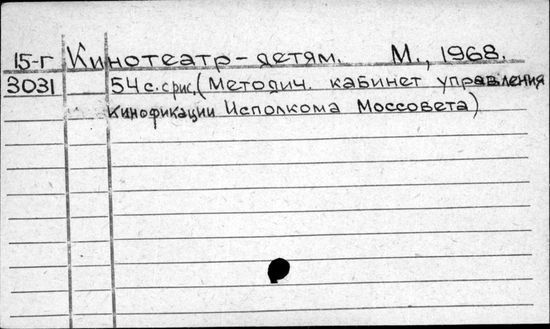 15-г Кинотеатр-детям. М., 1968.
3031 54 с. с рис, (Методич. кабинет управления
кинофикации Исполкома Моссовета)